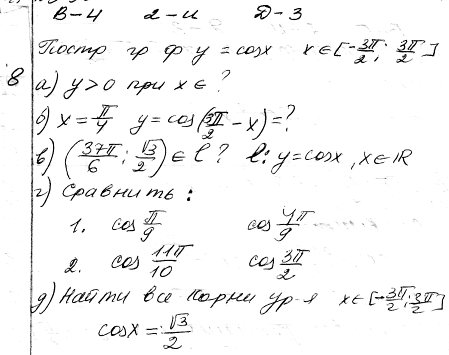 В-4 2-и Д-3
Постр гр ф y = cosx x ∈ [-3π/2; 3π/2]
8 а) y > 0 при x ∈ ?
б) x = π/4 y = cos(3π/2 - x) = ?
в) (37π/6; √3/2) ∈ l ? l: y = cosx, x ∈ R
г) Сравнить:
1. cos π/9 cos 4π/9
2. cos 11π/10 cos 3π/2
д) Найти все корни ур-я x ∈ [-3π/2; 3π/2]
cosx = √3/2